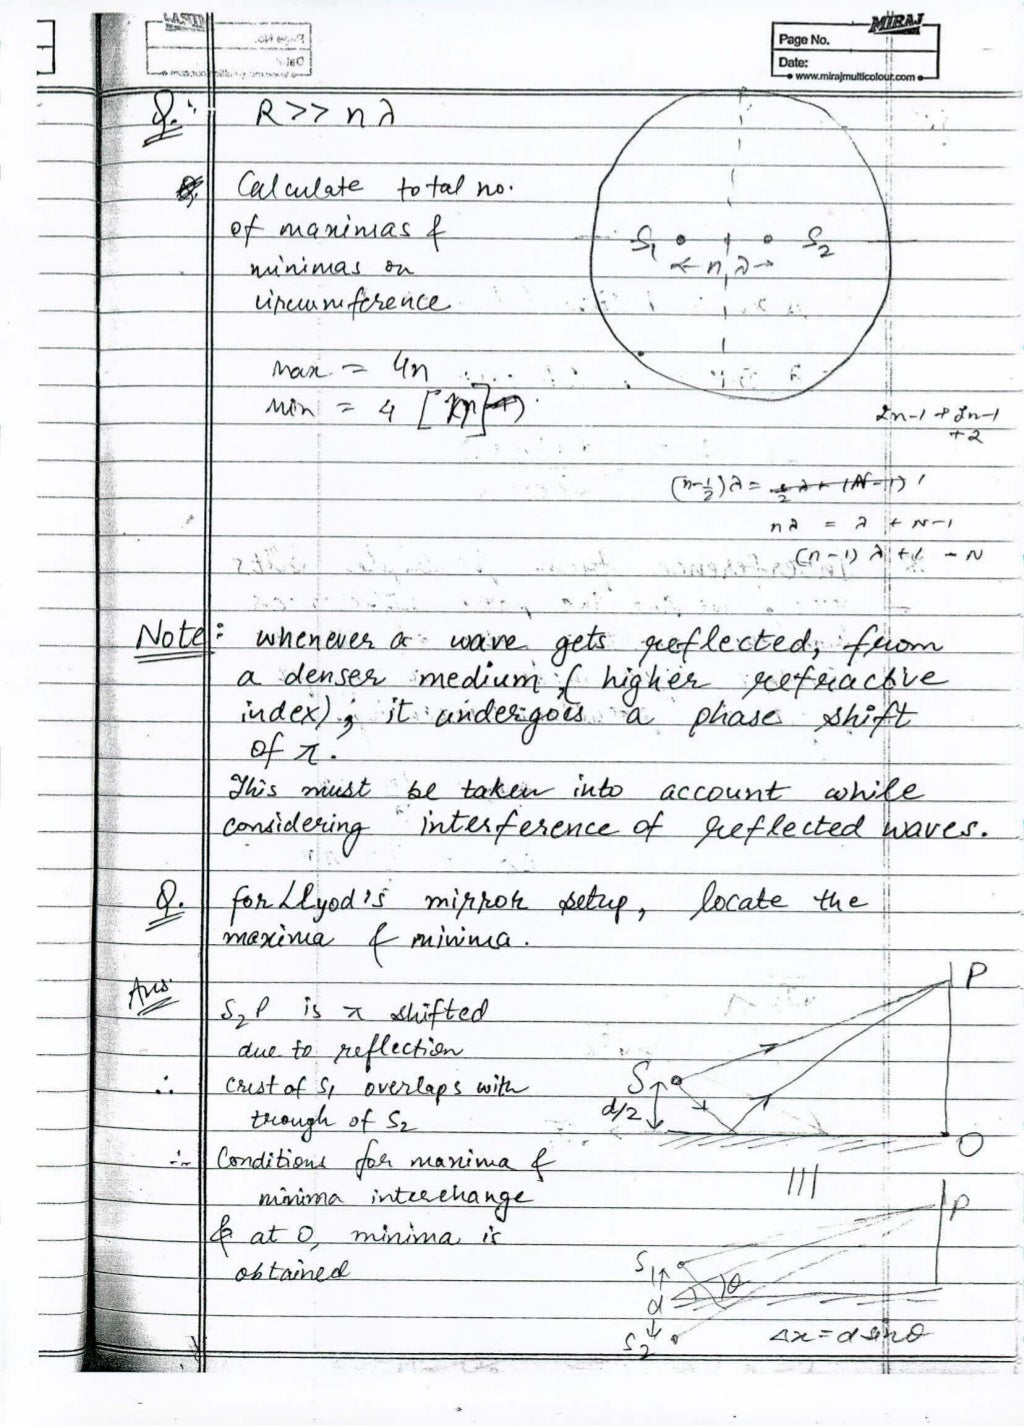 MIRAJ
Page No.
Date:
www.mirajmulticolour.com
Q. R >> nλ
Calculate total no.
of maximas &
minimas on
circumference
S1 S2
← nλ →
max = 4n
min = 4 [
2n-1 + 2n-1
+2
(n-1/2)λ =
nλ = λ + N-1
Note: whenever a wave gets reflected, from
a denser medium, (higher refractive
index); it undergoes a phase shift
of π.
This must be taken into account while
considering interference of reflected waves.
Q. for Llyod's mirror setup, locate the
maxima & minima.
Ans
S2P is π shifted
due to reflection
∴ crest of S1 overlaps with
trough of S2
∴ Conditions for maxima &
minima interchange
& at O, minima is
obtained
P
S
d/2
O
|||
P
S1
θ
d
S2
Δx = d sinθ